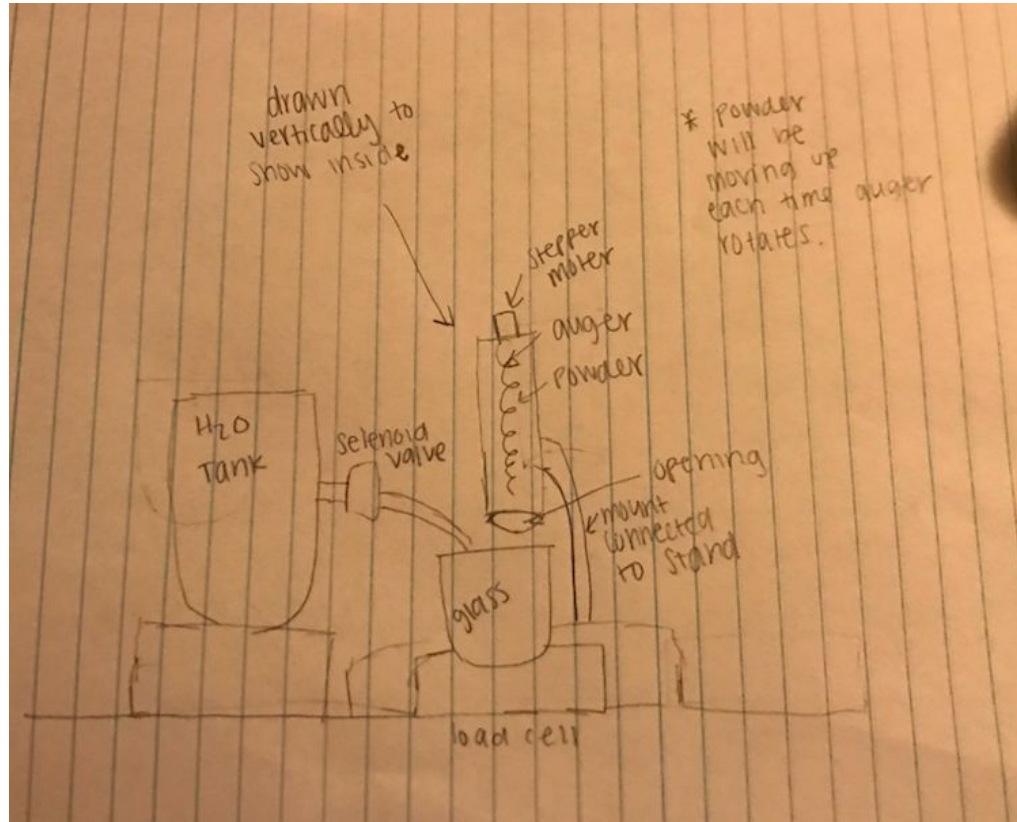 drawn
vertically to
show inside
* powder
will be
moving up
each time auger
rotates.
stepper
moter
auger
powder
H2O
Tank
selenoid
valve
opening
mount
connected
to stand
glass
load cell